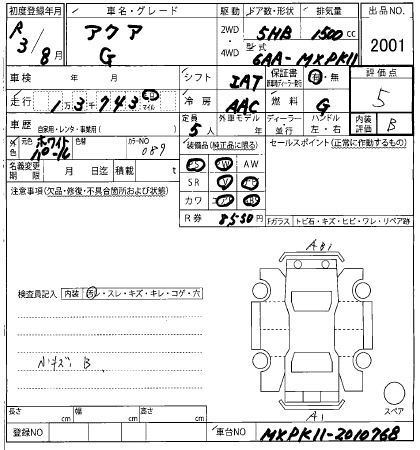 初度登録年月 車名・グレード 駆動 ドア数・形状 排気量 出品NO.
R3/8月 アクア G 2WD・4WD 5HB 1500cc 2001
型式 6AA-MXPK11
車検 年 月 シフト IAT 保証書 有・無 評価点 5
走行 1万3千743 キロ マイル 冷房 AAC 燃料 G
車歴 自家用・レンタ・事業用( ) 定員 5人 外車モデル 年 ディーラー・並行 ハンドル 左・右 内装評価 B
外色 元色 ホワイトパール 色替 カラーNO 089 装備品(純正品に限る) セールスポイント(正常に作動するもの)
PS SW AW
名義変更期限 月 日迄 積載 t SR
注意事項(欠品・修復・不具合箇所および状態) カワ
R券 8550円
Fガラス トビ石・キズ・ヒビ・ワレ・リペア跡
A8i
検査員記入 内装 汚レ・スレ・キズ・キレ・コゲ・穴
B
スペア
A1
長さ cm 幅 cm 高さ cm
登録NO 車台NO MXPK11-2010768